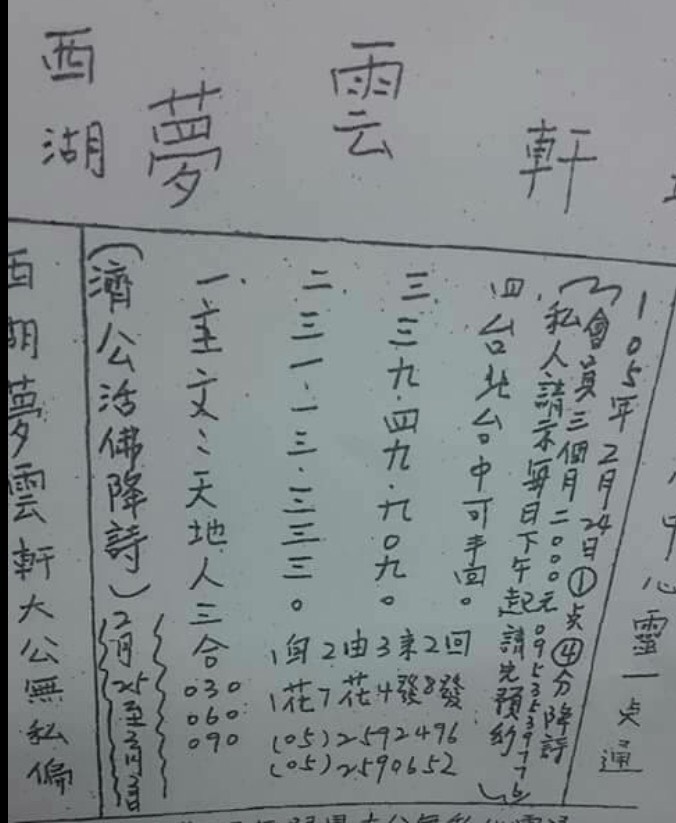 西湖夢雲軒
西湖夢雲軒大公無私偏
(濟公活佛降詩)
2月25至
一.主文:天地人三合
030
060
090
二.三一.一三.三三三。
三.三九.四九.九0九。
四.台北台中可手回。
1自2由3來2回
1花7花4發8發
(05)2592496
(05)2590652
私人請示每日下午起請先預約)
(會員三個月二000元0953539776
105年2月24日①点④分降詩
心靈一点通